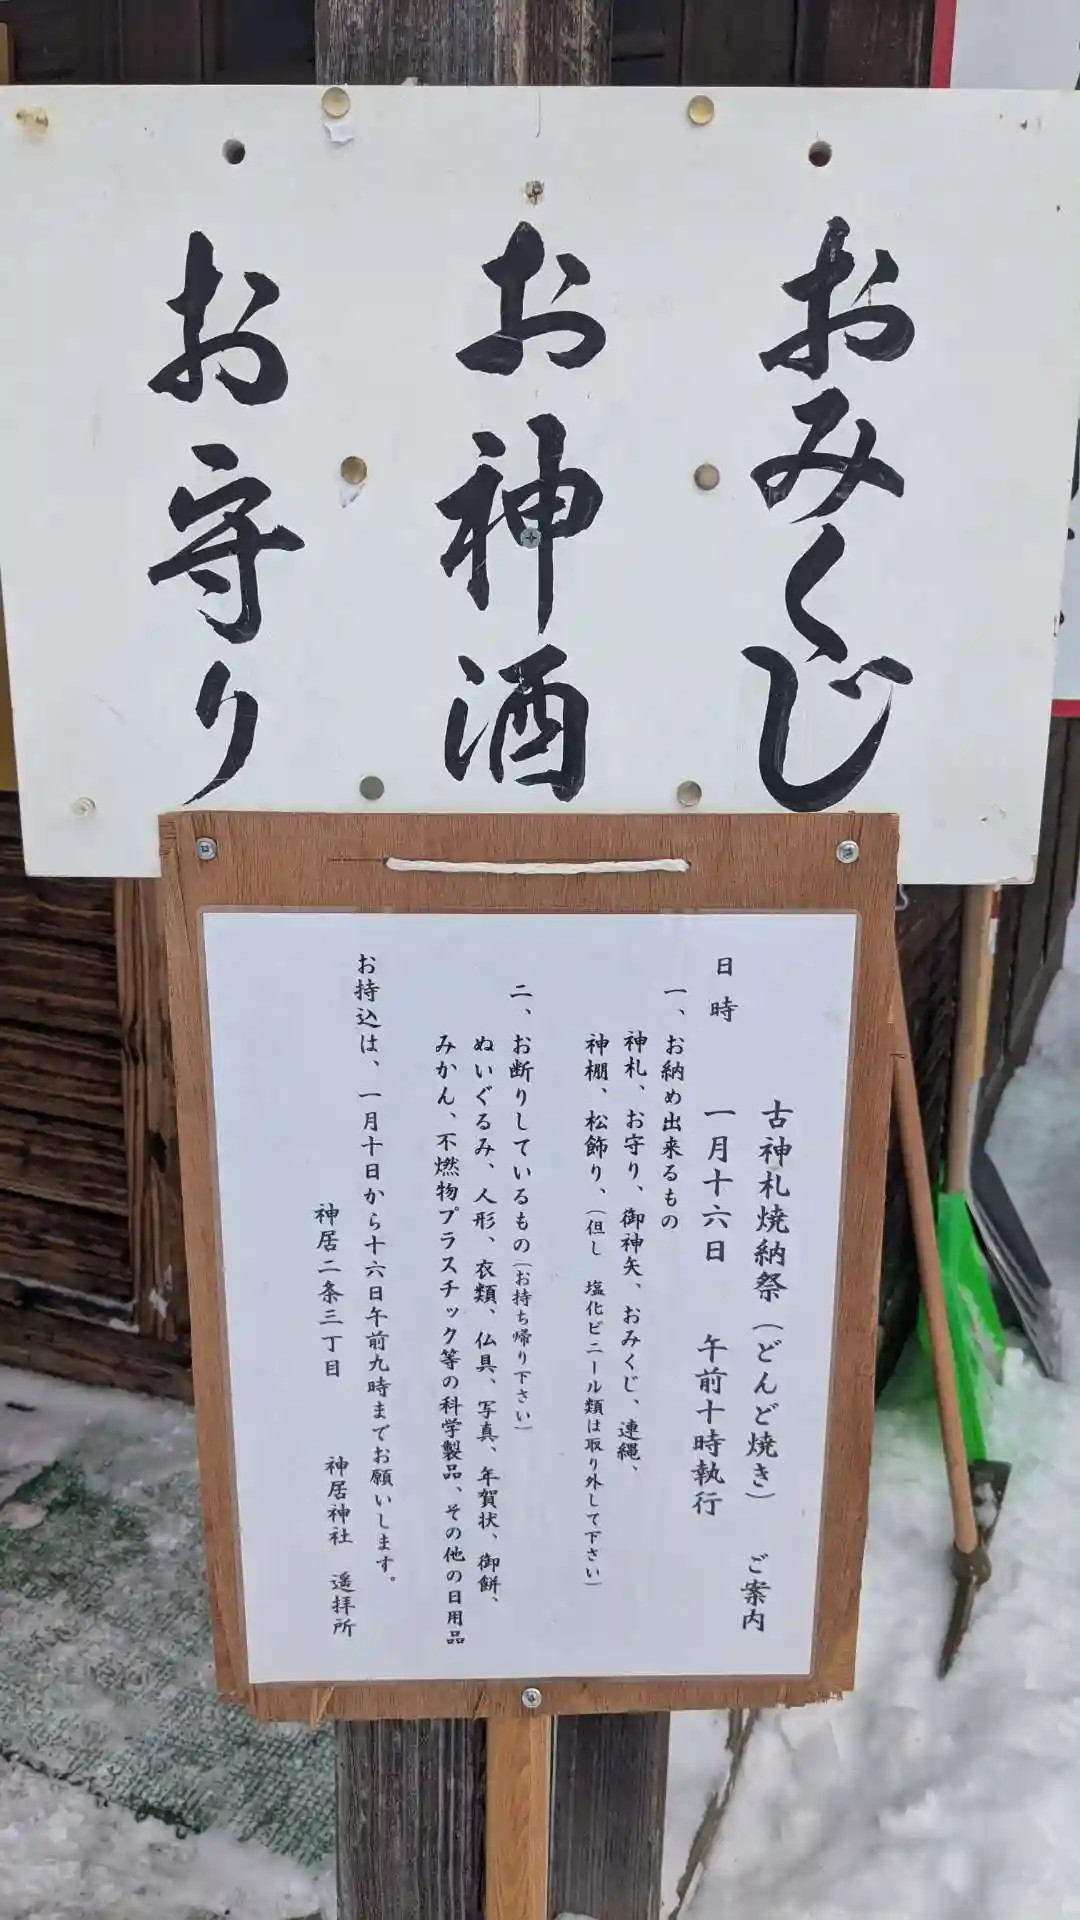 おみくじ
お神酒
お守り
古神札焼納祭（どんど焼き）　ご案内
日時　一月十六日　午前十時執行
一、お納め出来るもの
神札、お守り、御神矢、おみくじ、連縄、
神棚、松飾り、（但し　塩化ビニール類は取り外して下さい）
二、お断りしているもの（お持ち帰り下さい）
ぬいぐるみ、人形、衣類、仏具、写真、年賀状、御餅、
みかん、不燃物プラスチック等の科学製品、その他の日用品
お持込は、一月十日から十六日午前九時までお願いします。
神居二条三丁目　神居神社　遥拝所